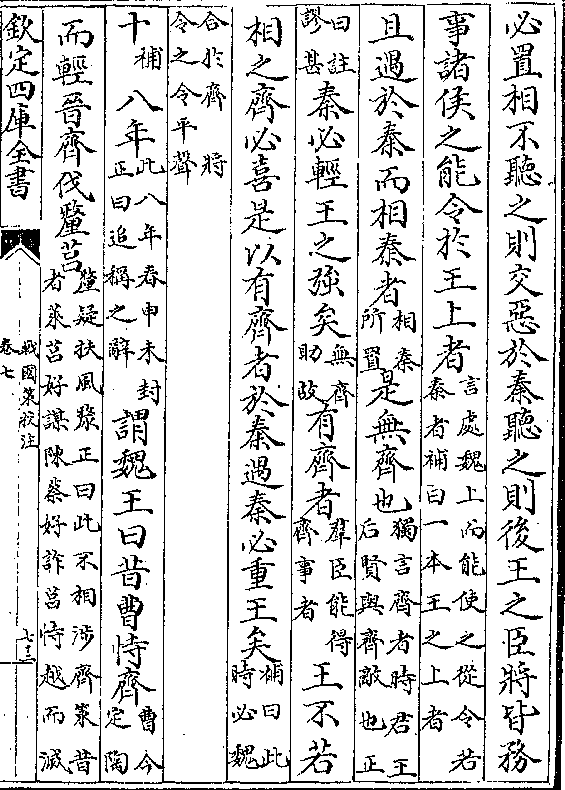 必置相不聽之則交惡於秦聽之則後王之臣將皆務
事諸侯之能令於王上者言處魏上而能使之從令若秦者補曰一本王之上者
且遇於秦而相秦者相秦所置是無齊也獨言齊者時君王后賢與齊敵也正
曰註謬甚秦必輕王之強矣無齊助故有齊者羣臣能得齊事者王不若
相之齊必喜是以有齊者於秦遇秦必重王矣補曰此時必魏
合於齊將令之令平聲
十補八年此八年春申未封正曰追稱之辭謂魏王曰昔曹恃齊曹今定陶
而輕晉齊伐釐莒釐疑扶風漦正曰此不相涉齊策昔者萊莒好謀陳蔡好詐莒恃越而滅
欽定四庫全書
戰國策校注
卷七